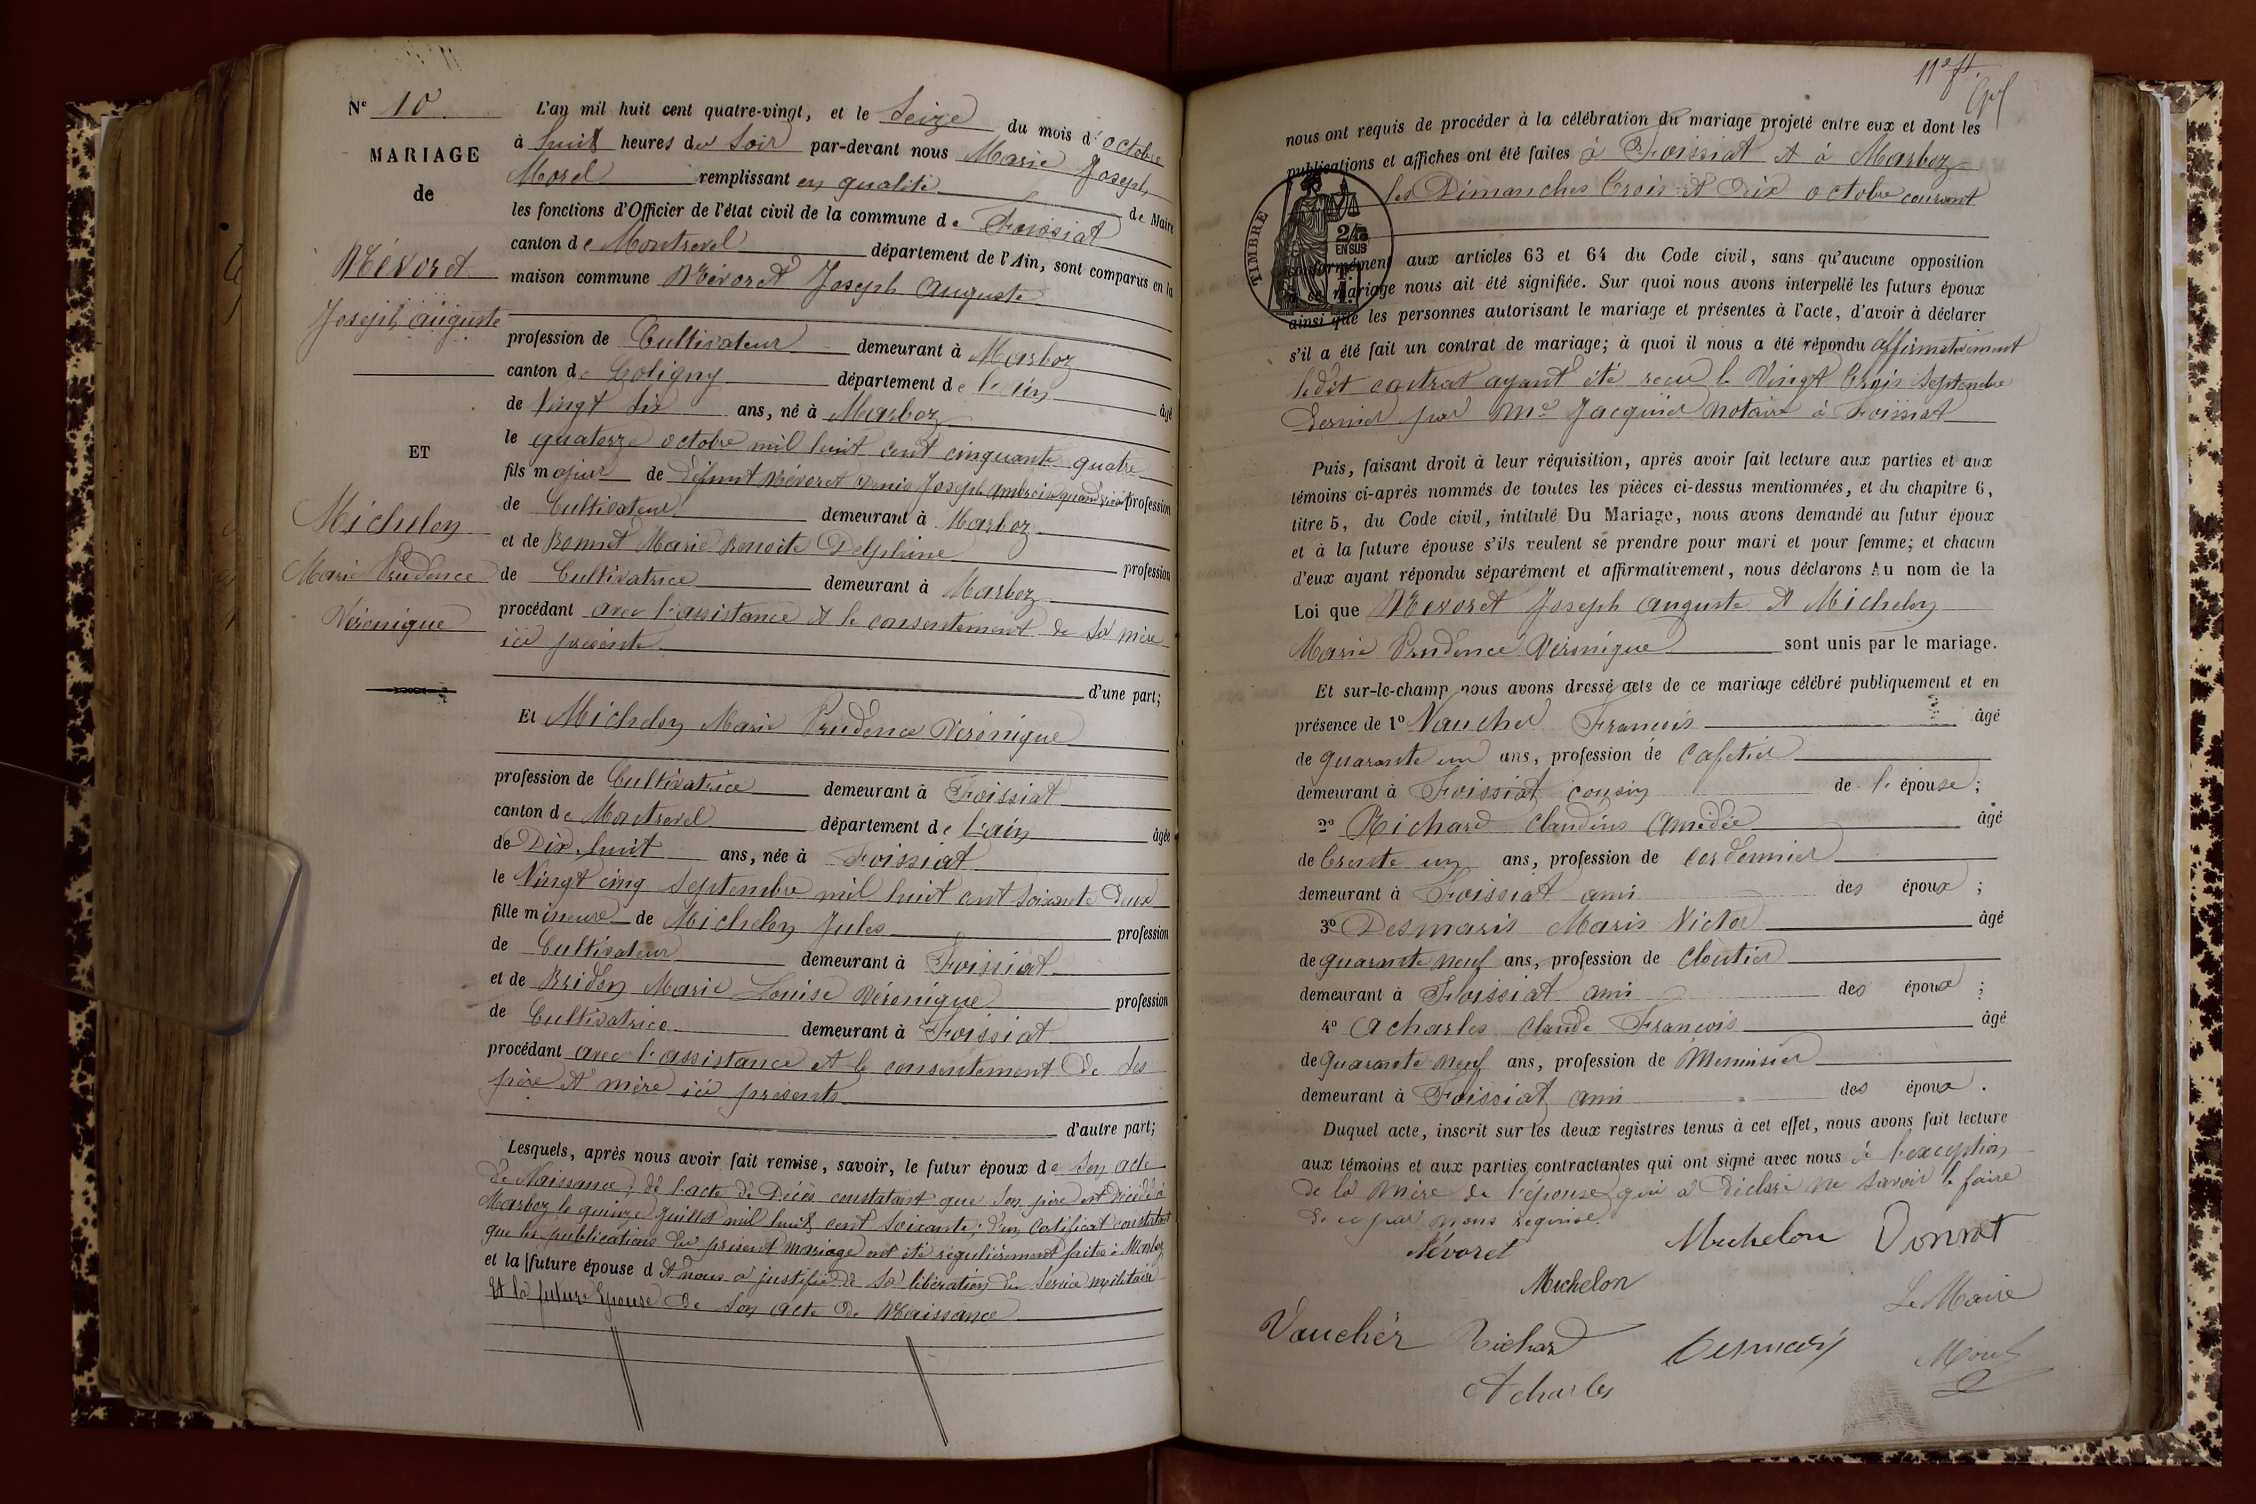 Nº 10
MARIAGE
de
Névoret
Joseph auguste
ET
Michelon
Marie Prudence
Véronique
L'an mil huit cent quatre-vingt, et le Seize du mois d'octobre
à huit heures du Soir par-devant nous Marie Joseph
Morel remplissant en qualité de Maire
les fonctions d'Officier de l'état civil de la commune de Foissiat
canton de Montrevel département de l'Ain, sont comparus en la
maison commune Névoret Joseph auguste
profession de Cultivateur demeurant à Marboz
canton de Coligny département de l'ain âgé
de Vingt Six ans, né à Marboz
le quatorze octobre mil huit cent cinquante quatre
fils majeur de Défunt Névoret Denis Joseph ambroise quand vivait profession
de Cultivateur demeurant à Marboz
et de Bonnet Marie Benoite Delphine profession
de Cultivatrice demeurant à Marboz
procédant avec l'assistance et le consentement de Sa mère
ici présente
d'une part;
Et Michelon Marie Prudence Véronique
profession de Cultivatrice demeurant à Foissiat
canton de Montrevel département de l'ain âgée
de Dix huit ans, née à Foissiat
le Vingt cinq Septembre mil huit cent Soixante Deux
fille mineure de Michelon Jules profession
de Cultivateur demeurant à Foissiat
et de Bridon Marie Louise Véronique profession
de Cultivatrice demeurant à Foissiat
procédant avec l'assistance et le consentement de Ses
père et mère ici présents
d'autre part;
Lesquels, après nous avoir fait remise, savoir, le futur époux de Son acte
de Naissance, de l'acte de Décès constatant que Son père est Décédé à
Marboz le quinze Juillet mil huit cent Soixante; d'un Certificat constatant
que les publications du présent mariage ont été régulièrement faites à Marboz
et la future épouse d Et nous a justifié de Sa libération du Service militaire
Et la future Epouse de Son acte de Naissance
11e ft
nous ont requis de procéder à la célébration du mariage projeté entre eux et dont les
publications et affiches ont été faites à Foissiat et à Marboz
les Dimanches Trois et Dix octobre courant
TIMBRE
2/10
EN SUS
conformément aux articles 63 et 64 du Code civil, sans qu'aucune opposition
à ce mariage nous ait été signifiée. Sur quoi nous avons interpellé les futurs époux
ainsi que les personnes autorisant le mariage et présentes à l'acte, d'avoir à déclarer
s'il a été fait un contrat de mariage; à quoi il nous a été répondu affirmativement
ledit contrat ayant été recu le Vingt Trois Septembre
Dernier par Me Jacquier Notaire à Foissiat
Puis, faisant droit à leur réquisition, après avoir fait lecture aux parties et aux
témoins ci-après nommés de toutes les pièces ci-dessus mentionnées, et du chapitre 6,
titre 5, du Code civil, intitulé Du Mariage, nous avons demandé au futur époux
et à la future épouse s'ils veulent se prendre pour mari et pour femme; et chacun
d'eux ayant répondu séparément et affirmativement, nous déclarons Au nom de la
Loi que Névoret Joseph auguste et Michelon
Marie Prudence Véronique sont unis par le mariage.
Et sur-le-champ nous avons dressé acte de ce mariage célébré publiquement et en
présence de 1º Vaucher Francois âgé
de quarante un ans, profession de Cafetier
demeurant à Foissiat cousin de l'épouse;
2º Richard Claudius Amédée âgé
de Trente un ans, profession de Cordonnier
demeurant à Foissiat ami des époux;
3º Desmaris Marie Victor âgé
de quarante neuf ans, profession de Cloutier
demeurant à Foissiat ami des époux;
4º Acharles Claude Francois âgé
de quarante neuf ans, profession de Menuisier
demeurant à Foissiat ami des époux.
Duquel acte, inscrit sur les deux registres tenus à cet effet, nous avons fait lecture
aux témoins et aux parties contractantes qui ont signé avec nous à l'exception
de la mère de l'épouse qui a Déclaré ne Savoir le faire
de ce par nous requise.
Névoret Michelon Bonnet
Michelon Le Maire
Vaucher Richard Desmaris Morel
Acharles